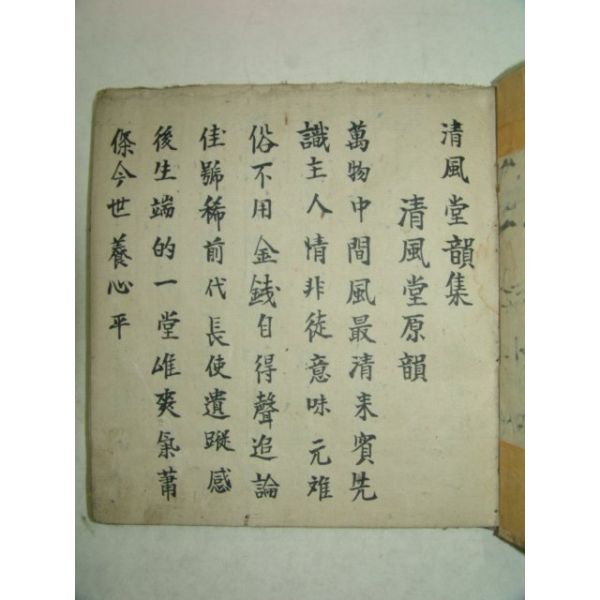 清風堂韻集
清風堂原韻
萬物中間風最清来賓先
識主人情非徒意味元难
俗不用金銭自得聲追論
佳號稀前代長使遺蹤感
後生端的一堂唯爽氣蕭
條今世養心平